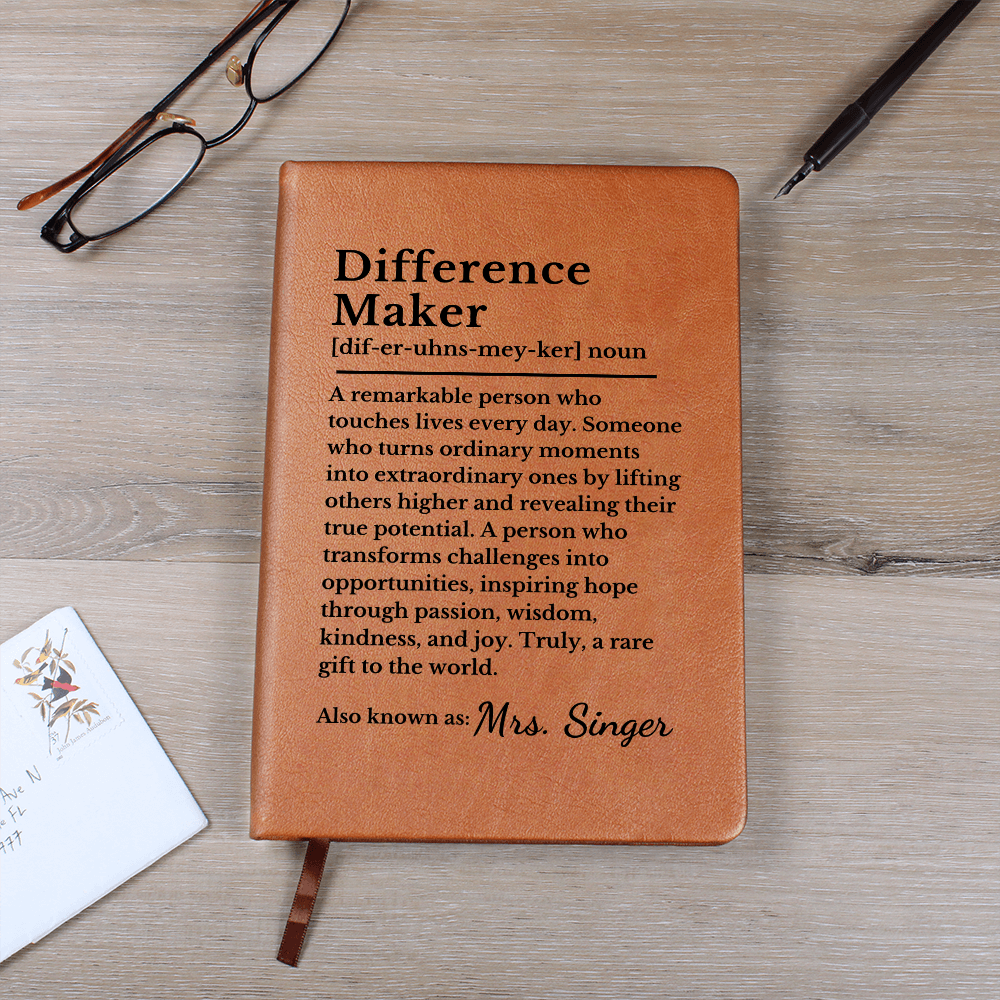 Difference
Maker
[dif-er-uhns-mey-ker] noun
A remarkable person who
touches lives every day. Someone
who turns ordinary moments
into extraordinary ones by lifting
others higher and revealing their
true potential. A person who
transforms challenges into
opportunities, inspiring hope
through passion, wisdom,
kindness, and joy. Truly, a rare
gift to the world.
Also known as: Mrs. Singer
37
John James Audubon
Ave N
FL
977